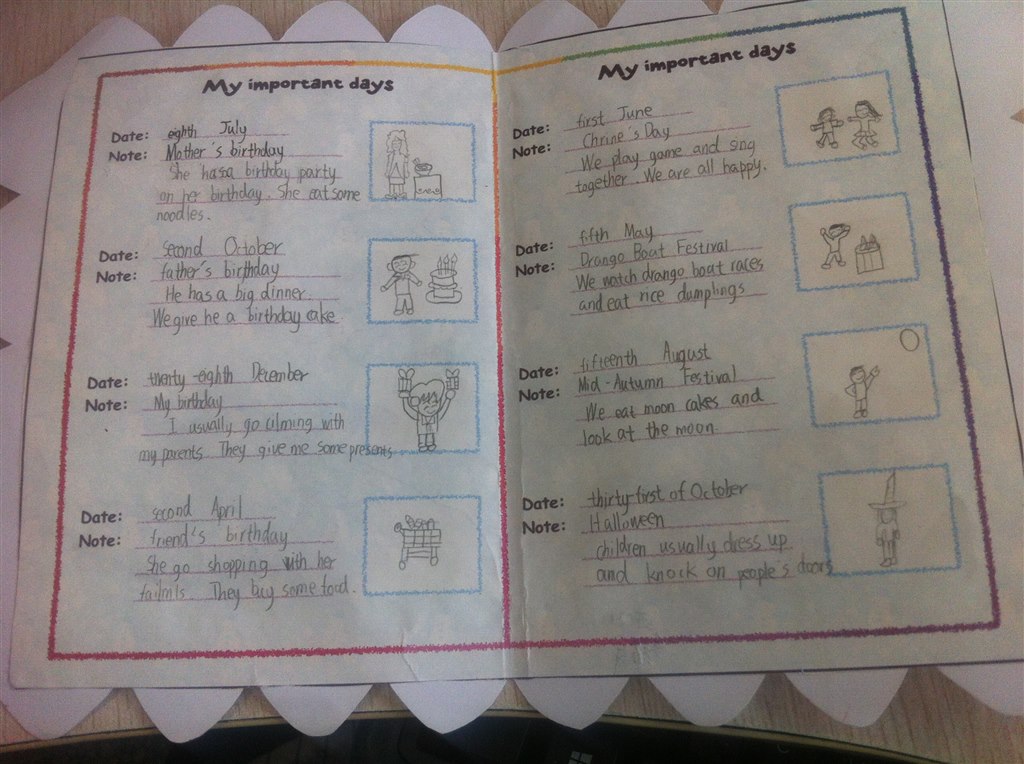 My important days
Date: eighth July
Note: Mother's birthday
She hasa birthday party
on her birthday. She eat some
noodles.
Date: second October
Note: father's birthday
He has a big dinner.
We give he a birthday cake
Date: twenty-eighth December
Note: My birthday
I usually go climing with
my parents. They give me some presents
Date: second April
Note: friend's birthday
She go shopping with her
They buy some food.
My important days
Date: first June
Note: Chrine's Day
We play game and sing
together. We are all happy.
Date: fifth May
Note: Drango Boat Festival
We watch drango boat races
and eat rice dumplings
Date: fifteenth August
Note: Mid-Autumn Festival
We eat moon cakes and
look at the moon
Date: thirty-first of October
Note: Halloween
children usually dress up
and knock on people's doors